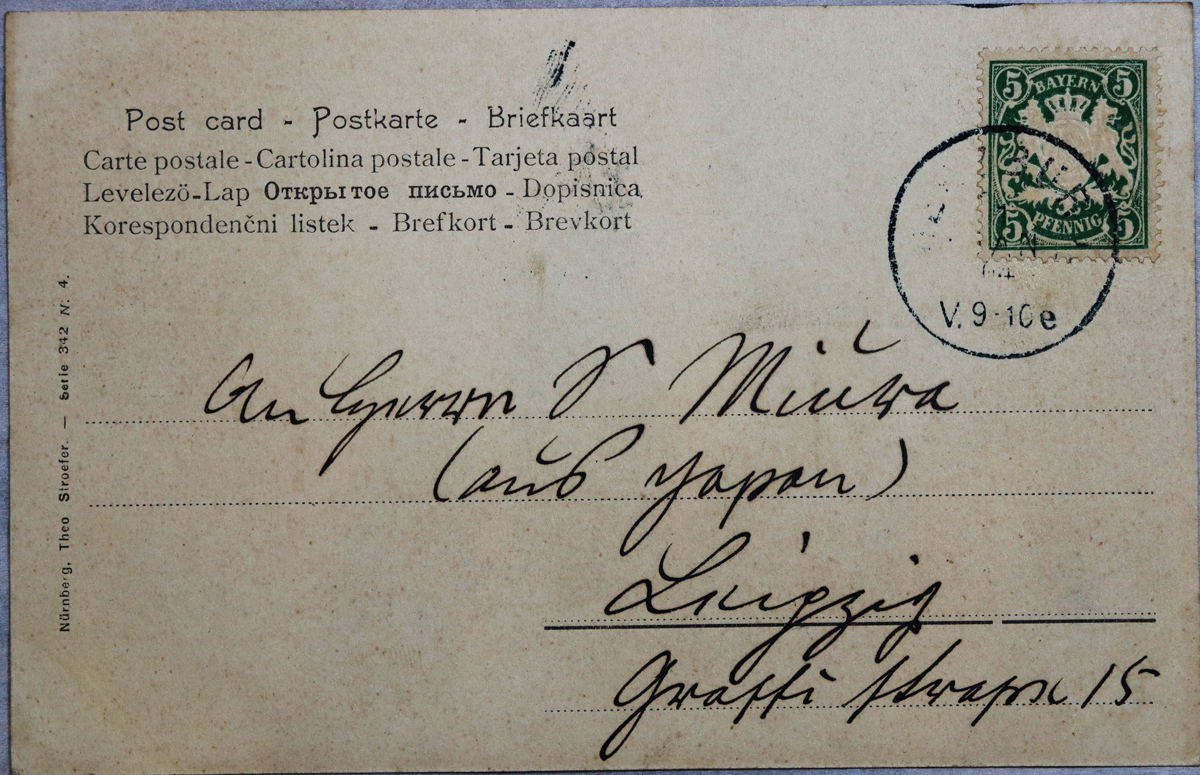 Post card - Postkarte - Briefkaart
Carte postale - Cartolina postale - Tarjeta postal
Levelezö-Lap Открытое письмо - Dopisnica
Korespondenčni listek - Brefkort - Brevkort
5 BAYERN 5
5 PFENNIG 5
V. 9-10 e
Nürnberg, Theo Stroefer. — Serie 342 N. 4.
An Herrn S Miura
(aus Japan)
Leipzig
Grassi strasse 15